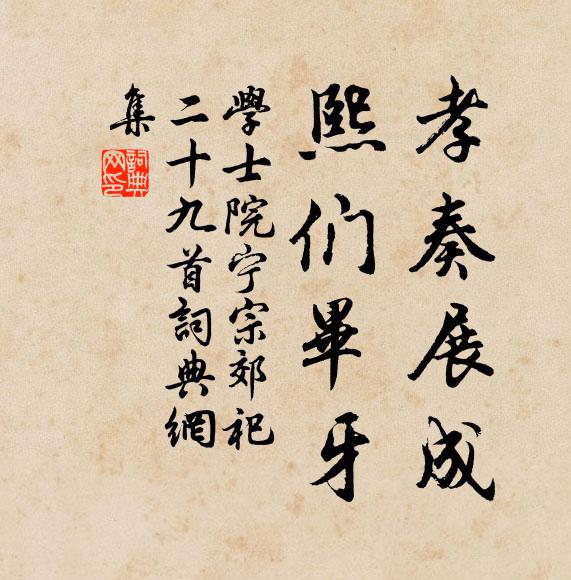 孝奏展成
熙们畢牙
學士院宁宗郊祀
二十九首詞典網
集
詞典網印